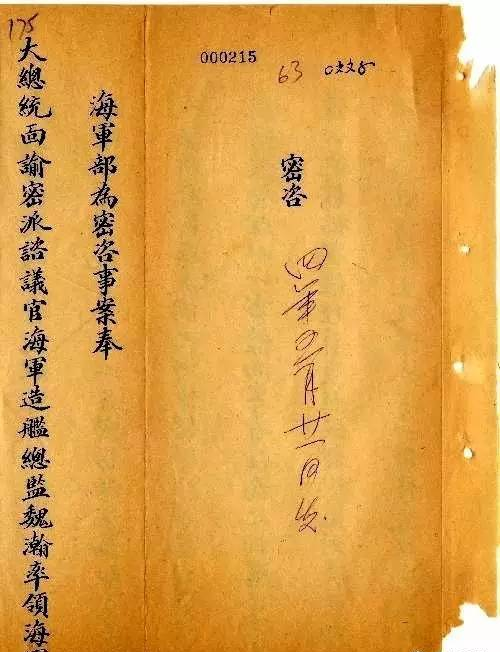 000215
63
密咨
四年月廿一日发
海軍部為密咨事案奉
175
大總統面諭密派諮議官海軍造艦總監魏瀚率領海